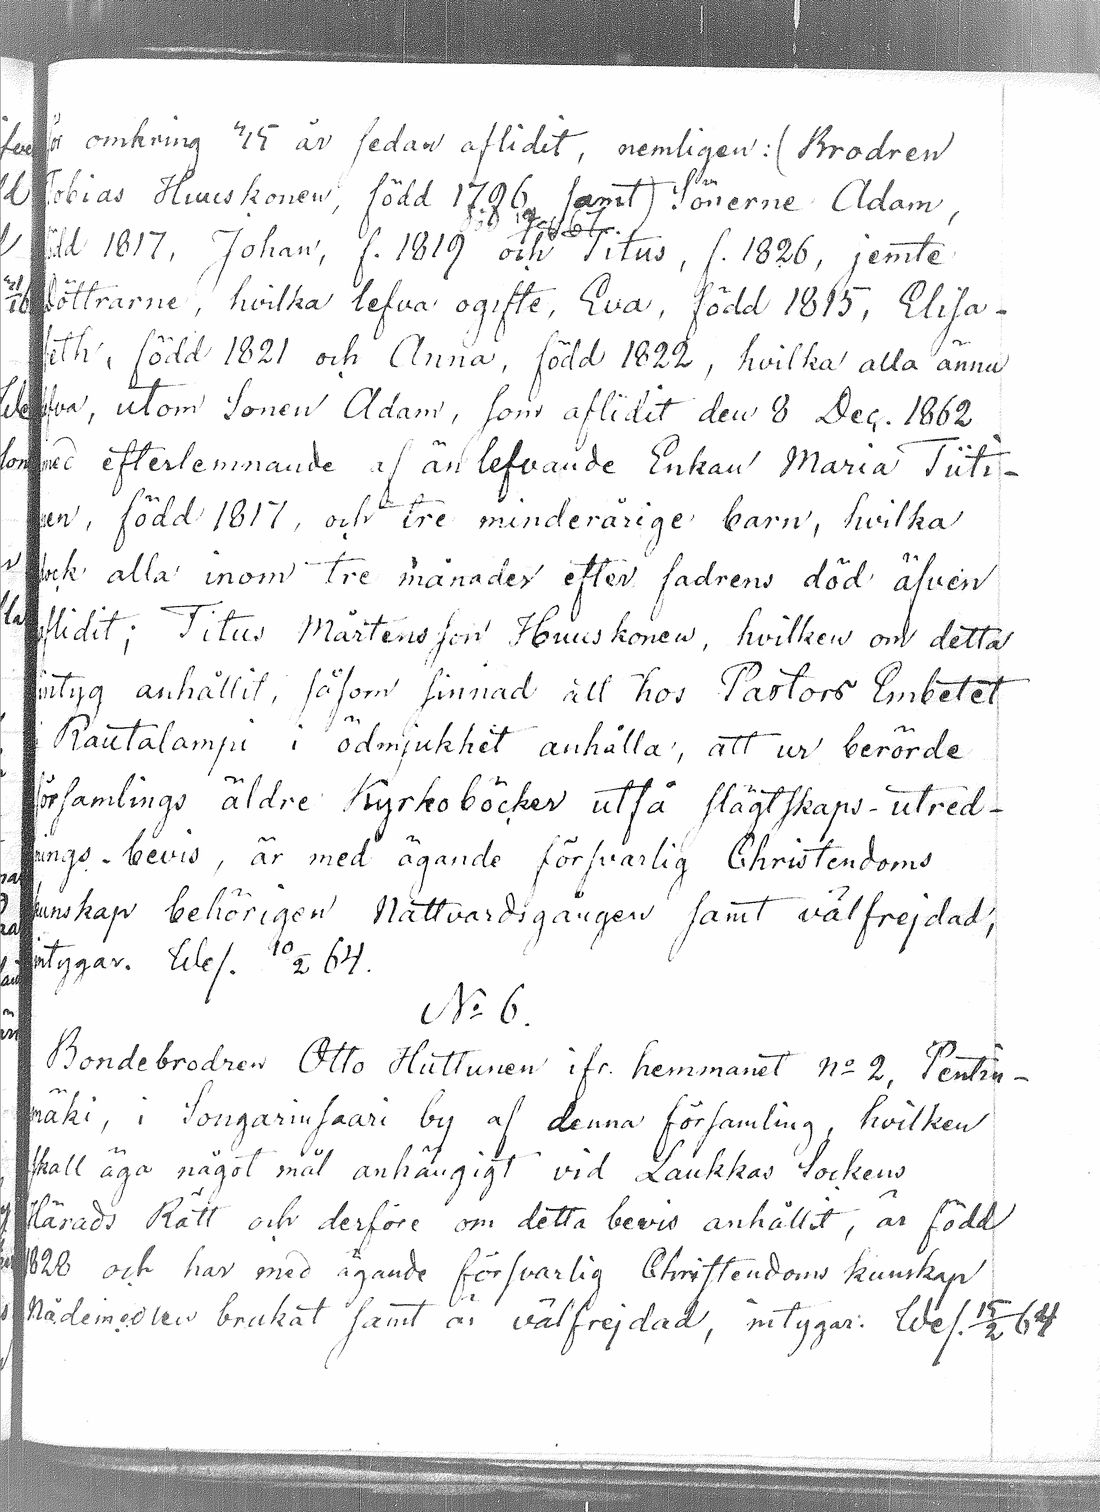 för omkring 45 år sedan aflidit, nemligen: (Brodren
Tobias Huuskonen, född 1796, samt) Sönerne Adam,
född 1817, Johan, f. 1819 och Titus, f. 1826, jemte
döttrarne, hvilka lefva ogifte, Eva, född 1815, Elisa-
beth, född 1821 och Anna, född 1822, hvilka alla ännu
lefva, utom Sonen Adam, som aflidit den 8 Dec. 1862
med efterlemnande af än lefvande Enkan Maria Tiiti-
nen, född 1817, och tre minderårige barn, hvilka
dock alla inom tre månader efter fadrens död äfven
aflidit; Titus Mårtensson Huuskonen, hvilken om detta
intyg anhållit, såsom sinnad att hos Pastors Embetet
i Rautalampi i ödmjukhet anhålla, att ur berörde
församlings äldre Kyrkoböcker utfå slägtskaps-utred-
nings-bevis, är med ägande försvarlig Christendoms
kunskap behörigen Nattvardsgången samt välfrejdad,
intygar. Wes. 10/2 64.
No 6.
Bondebrodren Otto Huttunen ifr. hemmanet No 2, Pentin-
mäki, i Songarinsaari by af denna församling, hvilken
skall äga något mål anhängigt vid Laukkas Sockens
Härads Rätt och derföre om detta bevis anhållit, är född
1828 och har med ägande försvarlig Christendoms kunskap
Nådemedlen brukat samt är välfrejdad, intygar. Wes. 15/2 64